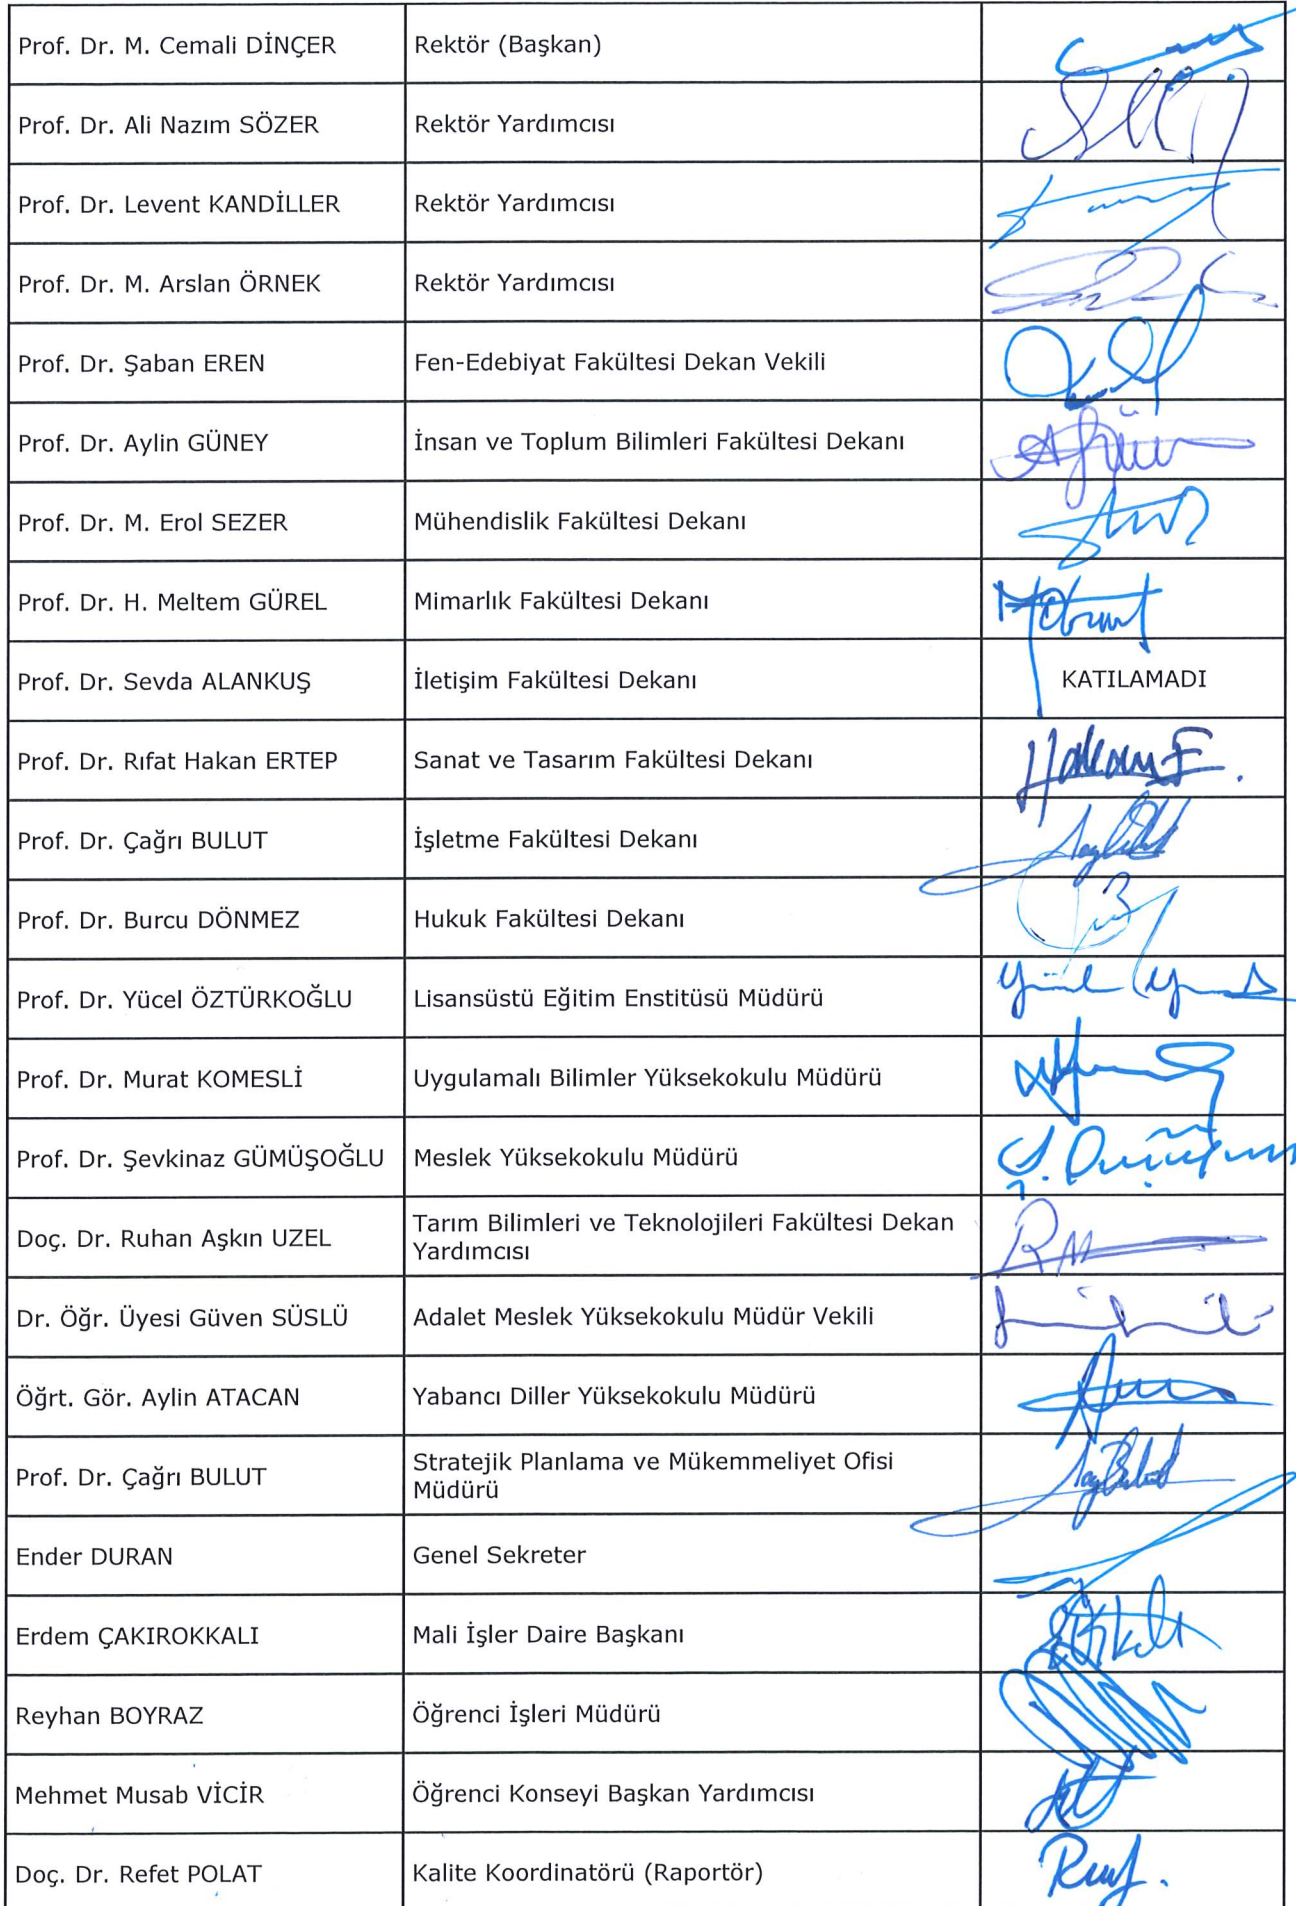 Prof. Dr. M. Cemali DİNÇER Rektör (Başkan)
Prof. Dr. Ali Nazım SÖZER Rektör Yardımcısı
Prof. Dr. Levent KANDİLLER Rektör Yardımcısı
Prof. Dr. M. Arslan ÖRNEK Rektör Yardımcısı
Prof. Dr. Şaban EREN Fen-Edebiyat Fakültesi Dekan Vekili
Prof. Dr. Aylin GÜNEY İnsan ve Toplum Bilimleri Fakültesi Dekanı
Prof. Dr. M. Erol SEZER Mühendislik Fakültesi Dekanı
Prof. Dr. H. Meltem GÜREL Mimarlık Fakültesi Dekanı
Prof. Dr. Sevda ALANKUŞ İletişim Fakültesi Dekanı KATILAMADI
Prof. Dr. Rıfat Hakan ERTEP Sanat ve Tasarım Fakültesi Dekanı Hakan E.
Prof. Dr. Çağrı BULUT İşletme Fakültesi Dekanı
Prof. Dr. Burcu DÖNMEZ Hukuk Fakültesi Dekanı
Prof. Dr. Yücel ÖZTÜRKOĞLU Lisansüstü Eğitim Enstitüsü Müdürü
Prof. Dr. Murat KOMESLİ Uygulamalı Bilimler Yüksekokulu Müdürü
Prof. Dr. Şevkinaz GÜMÜŞOĞLU Meslek Yüksekokulu Müdürü
Doç. Dr. Ruhan Aşkın UZEL Tarım Bilimleri ve Teknolojileri Fakültesi Dekan
Yardımcısı
Dr. Öğr. Üyesi Güven SÜSLÜ Adalet Meslek Yüksekokulu Müdür Vekili
Öğrt. Gör. Aylin ATACAN Yabancı Diller Yüksekokulu Müdürü
Prof. Dr. Çağrı BULUT Stratejik Planlama ve Mükemmeliyet Ofisi
Müdürü
Ender DURAN Genel Sekreter
Erdem ÇAKIROKKALI Mali İşler Daire Başkanı
Reyhan BOYRAZ Öğrenci İşleri Müdürü
Mehmet Musab VİCİR Öğrenci Konseyi Başkan Yardımcısı
Doç. Dr. Refet POLAT Kalite Koordinatörü (Raportör)